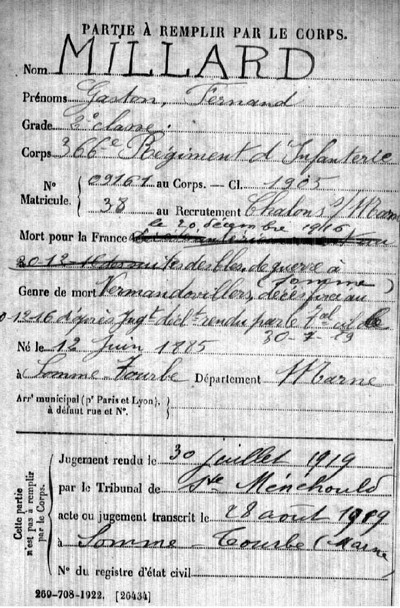 PARTIE À REMPLIR PAR LE CORPS.
Nom MILLARD
Prénoms Gaston, Fernand
Grade 2e classe
Corps 366e Régiment d'Infanterie
N° 09161 au Corps. — Cl. 1905
Matricule. 38 au Recrutement Chalons s/Marne
le 20 décembre 1916
Mort pour la France
suites des bles. de guerre à
(Somme)
Genre de mort Vermandovillers, décès fixé au
-12-16 d'après Jugt déclt rendu par le
30-7-19
Né le 12 Juin 1885
à Somme Tourbe Département Marne
Arrt municipal (pr Paris et Lyon),
à défaut rue et N°.
Cette partie
n'est pas à remplir
par le Corps.
Jugement rendu le 30 juillet 1919
par le Tribunal de Ste Ménehould
acte ou jugement transcrit le 28 août 1919
à Somme-Tourbe (Marne)
N° du registre d'état civil
269-708-1922. [26434]